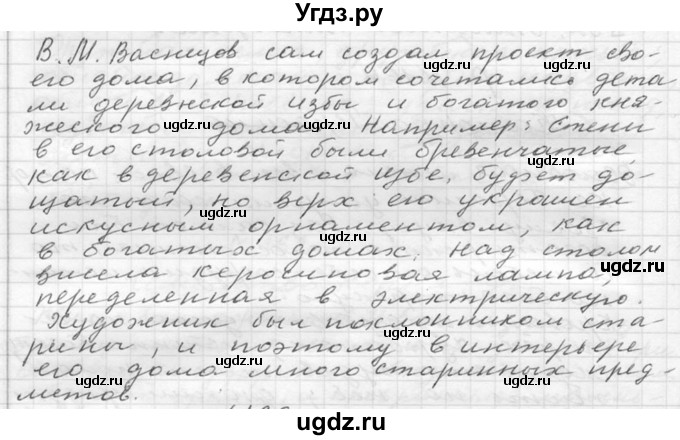 Угдз.ру
В. М. Васнецов сам создал проект сво-
его дома, в котором сочетались дета
ли деревнской избы и богатого кня-
жеского дома. Например: Стены
в его столовой были бревенчатые,
как в деревенской избе, буфет до-
щатый, но верх его украшен
искусным орнаментом, как
в богатых домах. Над столом
висела керосиновая лампа,
переделенная в электрическую.
Художник был поклонником ста-
рины, и поэтому в интерьере
его дома много старинных пред-
метов.
ugdz.ru
ugdz.ru
ugdz.ru
ugdz.ru
ugdz.ru
ugdz.ru
ugdz.ru
ugdz.ru
ugdz.ru
ugdz.ru
ugdz.ru
ugdz.ru